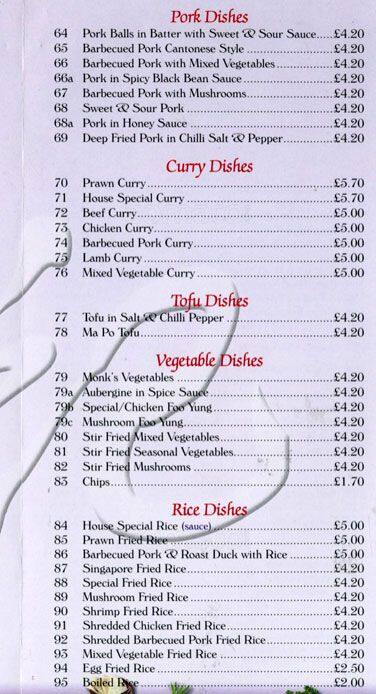 Pork Dishes
64 Pork Balls in Batter with Sweet & Sour Sauce.....£4.20
65 Barbecued Pork Cantonese Style ........................£4.20
66 Barbecued Pork with Mixed Vegetables...............£4.20
66a Pork in Spicy Black Bean Sauce........................£4.20
67 Barbecued Pork with Mushrooms......................£4.20
68 Sweet & Sour Pork ........................................£4.20
68a Pork in Honey Sauce .....................................£4.20
69 Deep Fried Pork in Chilli Salt & Pepper..............£4.20
Curry Dishes
70 Prawn Curry................................................£5.70
71 House Special Curry .....................................£5.70
72 Beef Curry..................................................£5.00
73 Chicken Curry..............................................£5.00
74 Barbecued Pork Curry....................................£5.00
75 Lamb Curry.................................................£5.00
76 Mixed Vegetable Curry...................................£5.00
Tofu Dishes
77 Tofu in Salt & Chilli Pepper ............................£4.20
78 Ma Po Tofu..................................................£4.20
Vegetable Dishes
79 Monk's Vegetables ........................................£4.20
79a Aubergine in Spice Sauce................................£4.20
79b Special/Chicken Foo Yung...............................£4.20
79c Mushroom Foo Yung......................................£4.20
80 Stir Fried Mixed Vegetables.............................£4.20
81 Stir Fried Seasonal Vegetables..........................£4.20
82 Stir Fried Mushrooms ....................................£4.20
83 Chips..........................................................£1.70
Rice Dishes
84 House Special Rice (sauce) ..............................£5.00
85 Prawn Fried Rice ..........................................£5.00
86 Barbecued Pork & Roast Duck with Rice ...........£5.00
87 Singapore Fried Rice......................................£4.20
88 Special Fried Rice.........................................£4.20
89 Mushroom Fried Rice.....................................£4.20
90 Shrimp Fried Rice.........................................£4.20
91 Shredded Chicken Fried Rice...........................£4.20
92 Shredded Barbecued Pork Fried Rice.................£4.20
93 Mixed Vegetable Fried Rice .............................£4.20
94 Egg Fried Rice .............................................£2.50
95 Boiled Rice..................................................£2.00